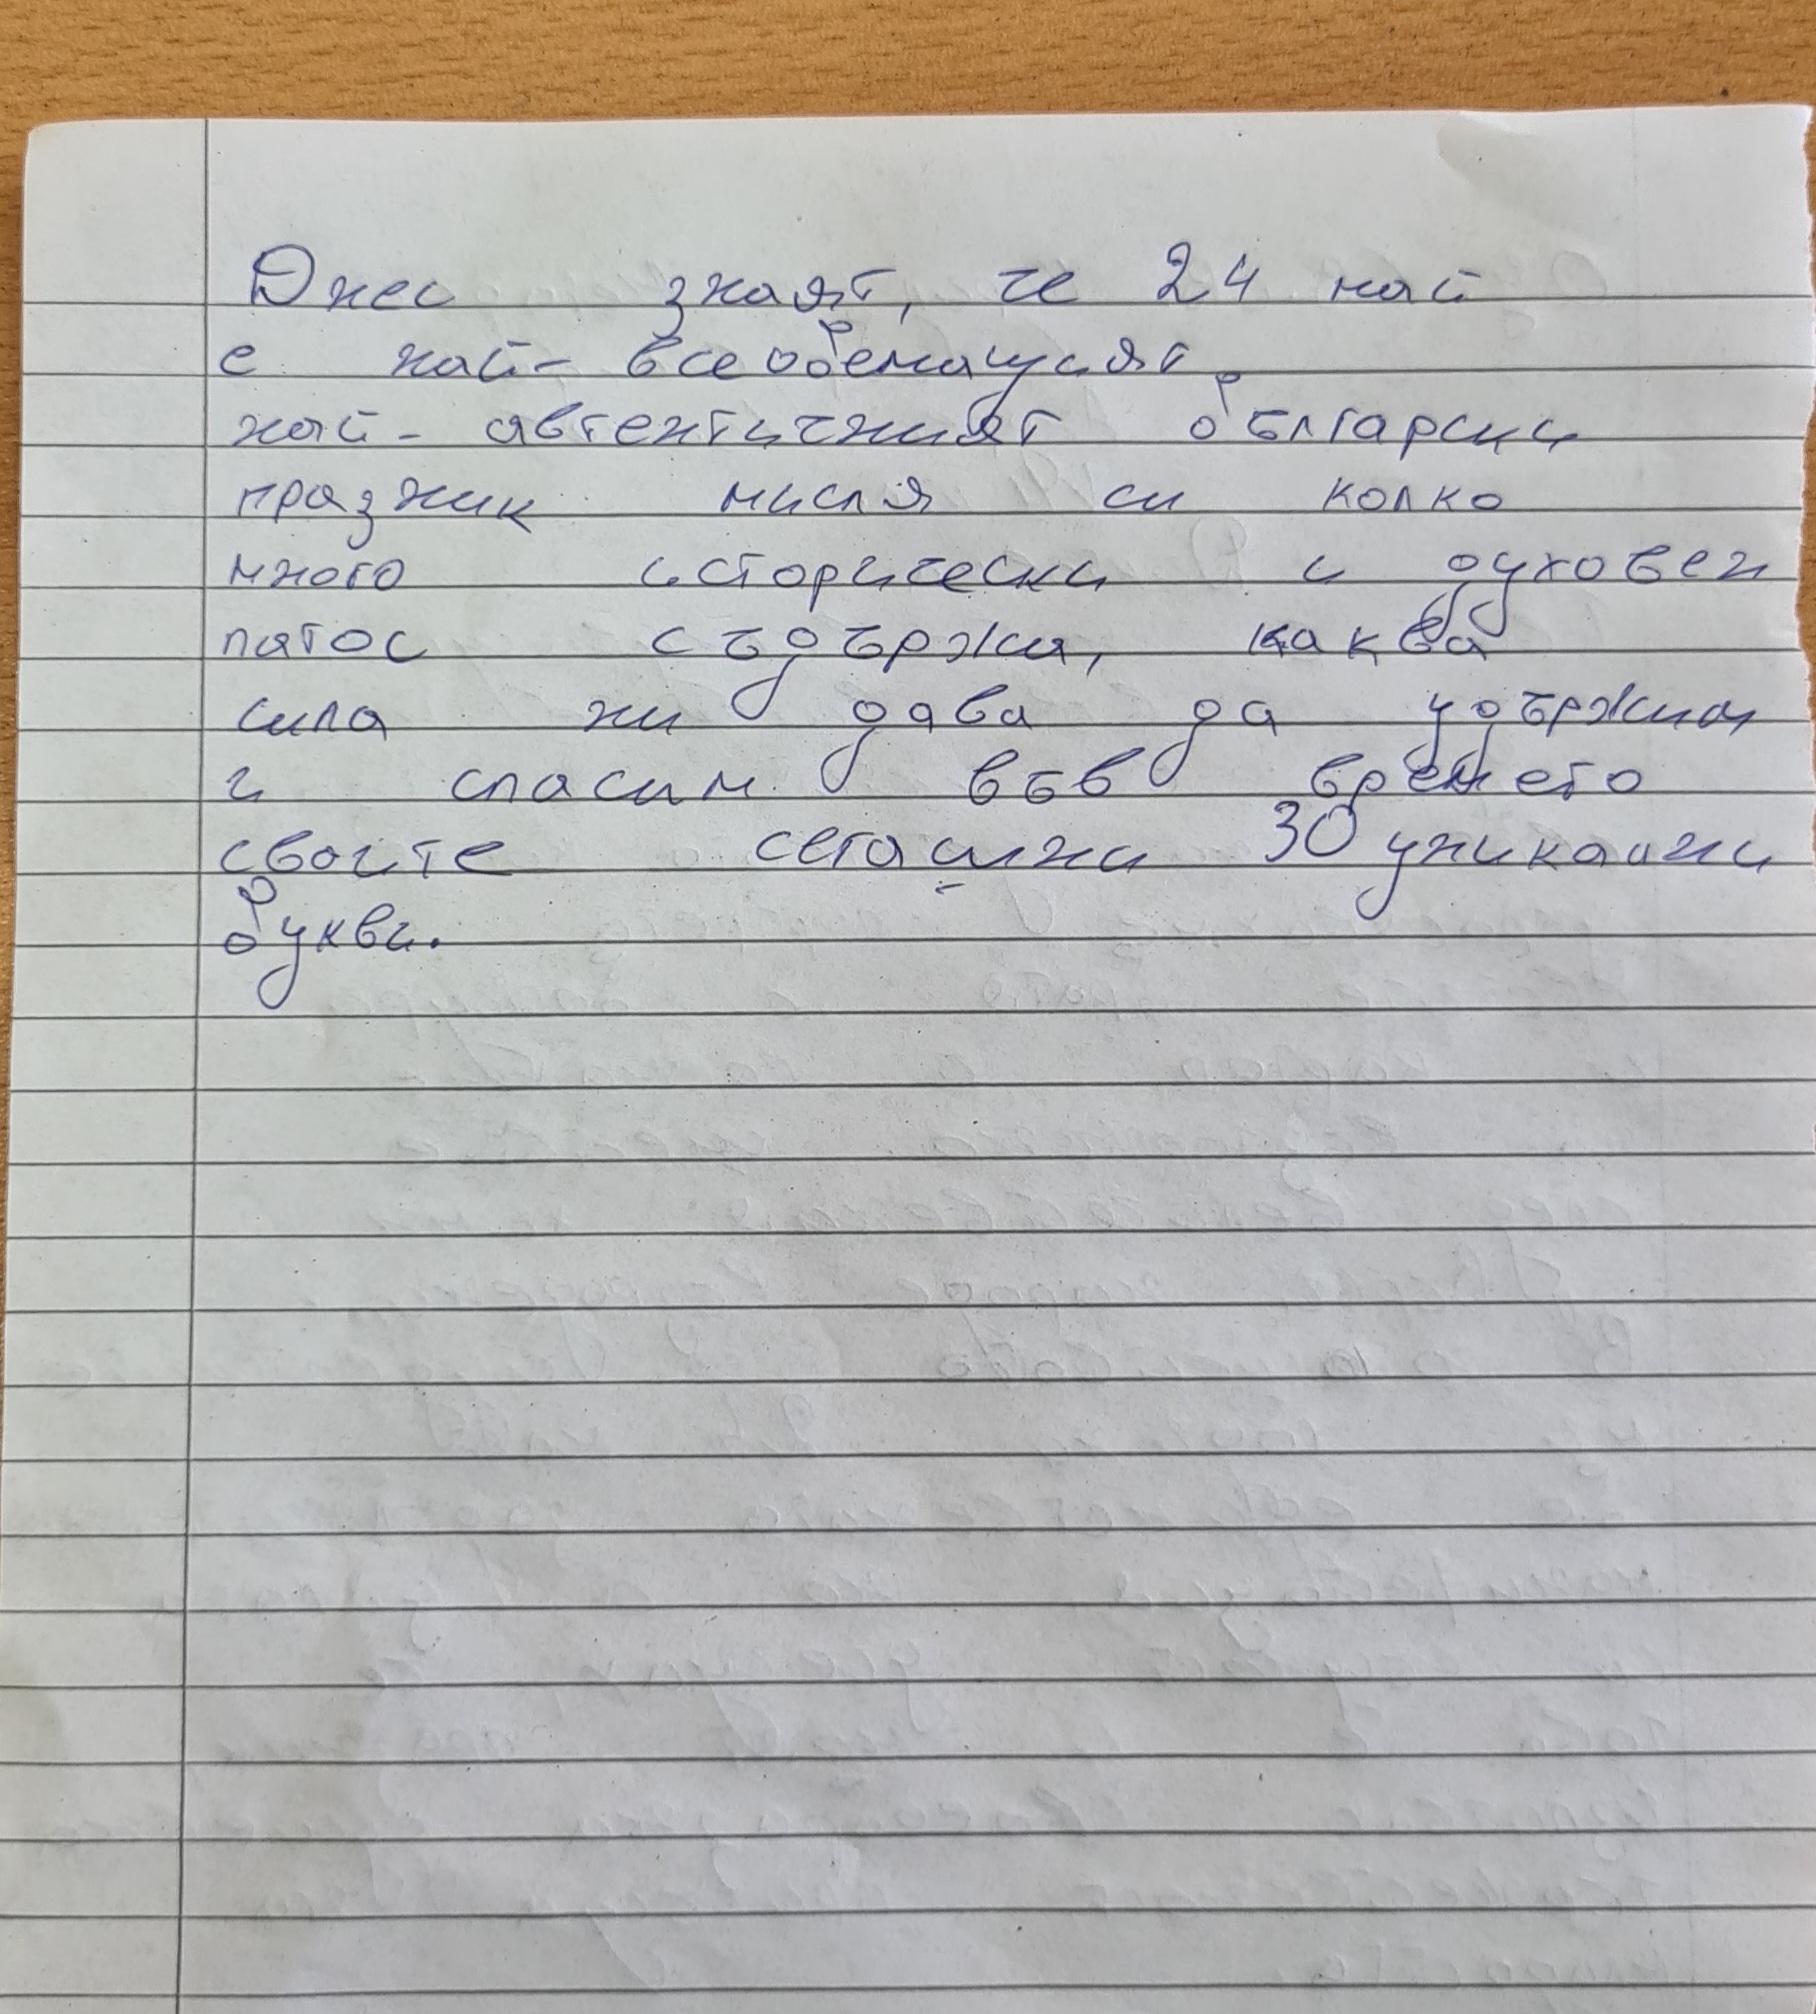 Днес знаят, че 24 май
е най- всеобемащият
най- автентичният български
празник мисля си колко
много исторически и духовен
патос съдържа, каква
сила ни дава да удържим
и спасим във времето
своите сегашни 30 уникални
букви.